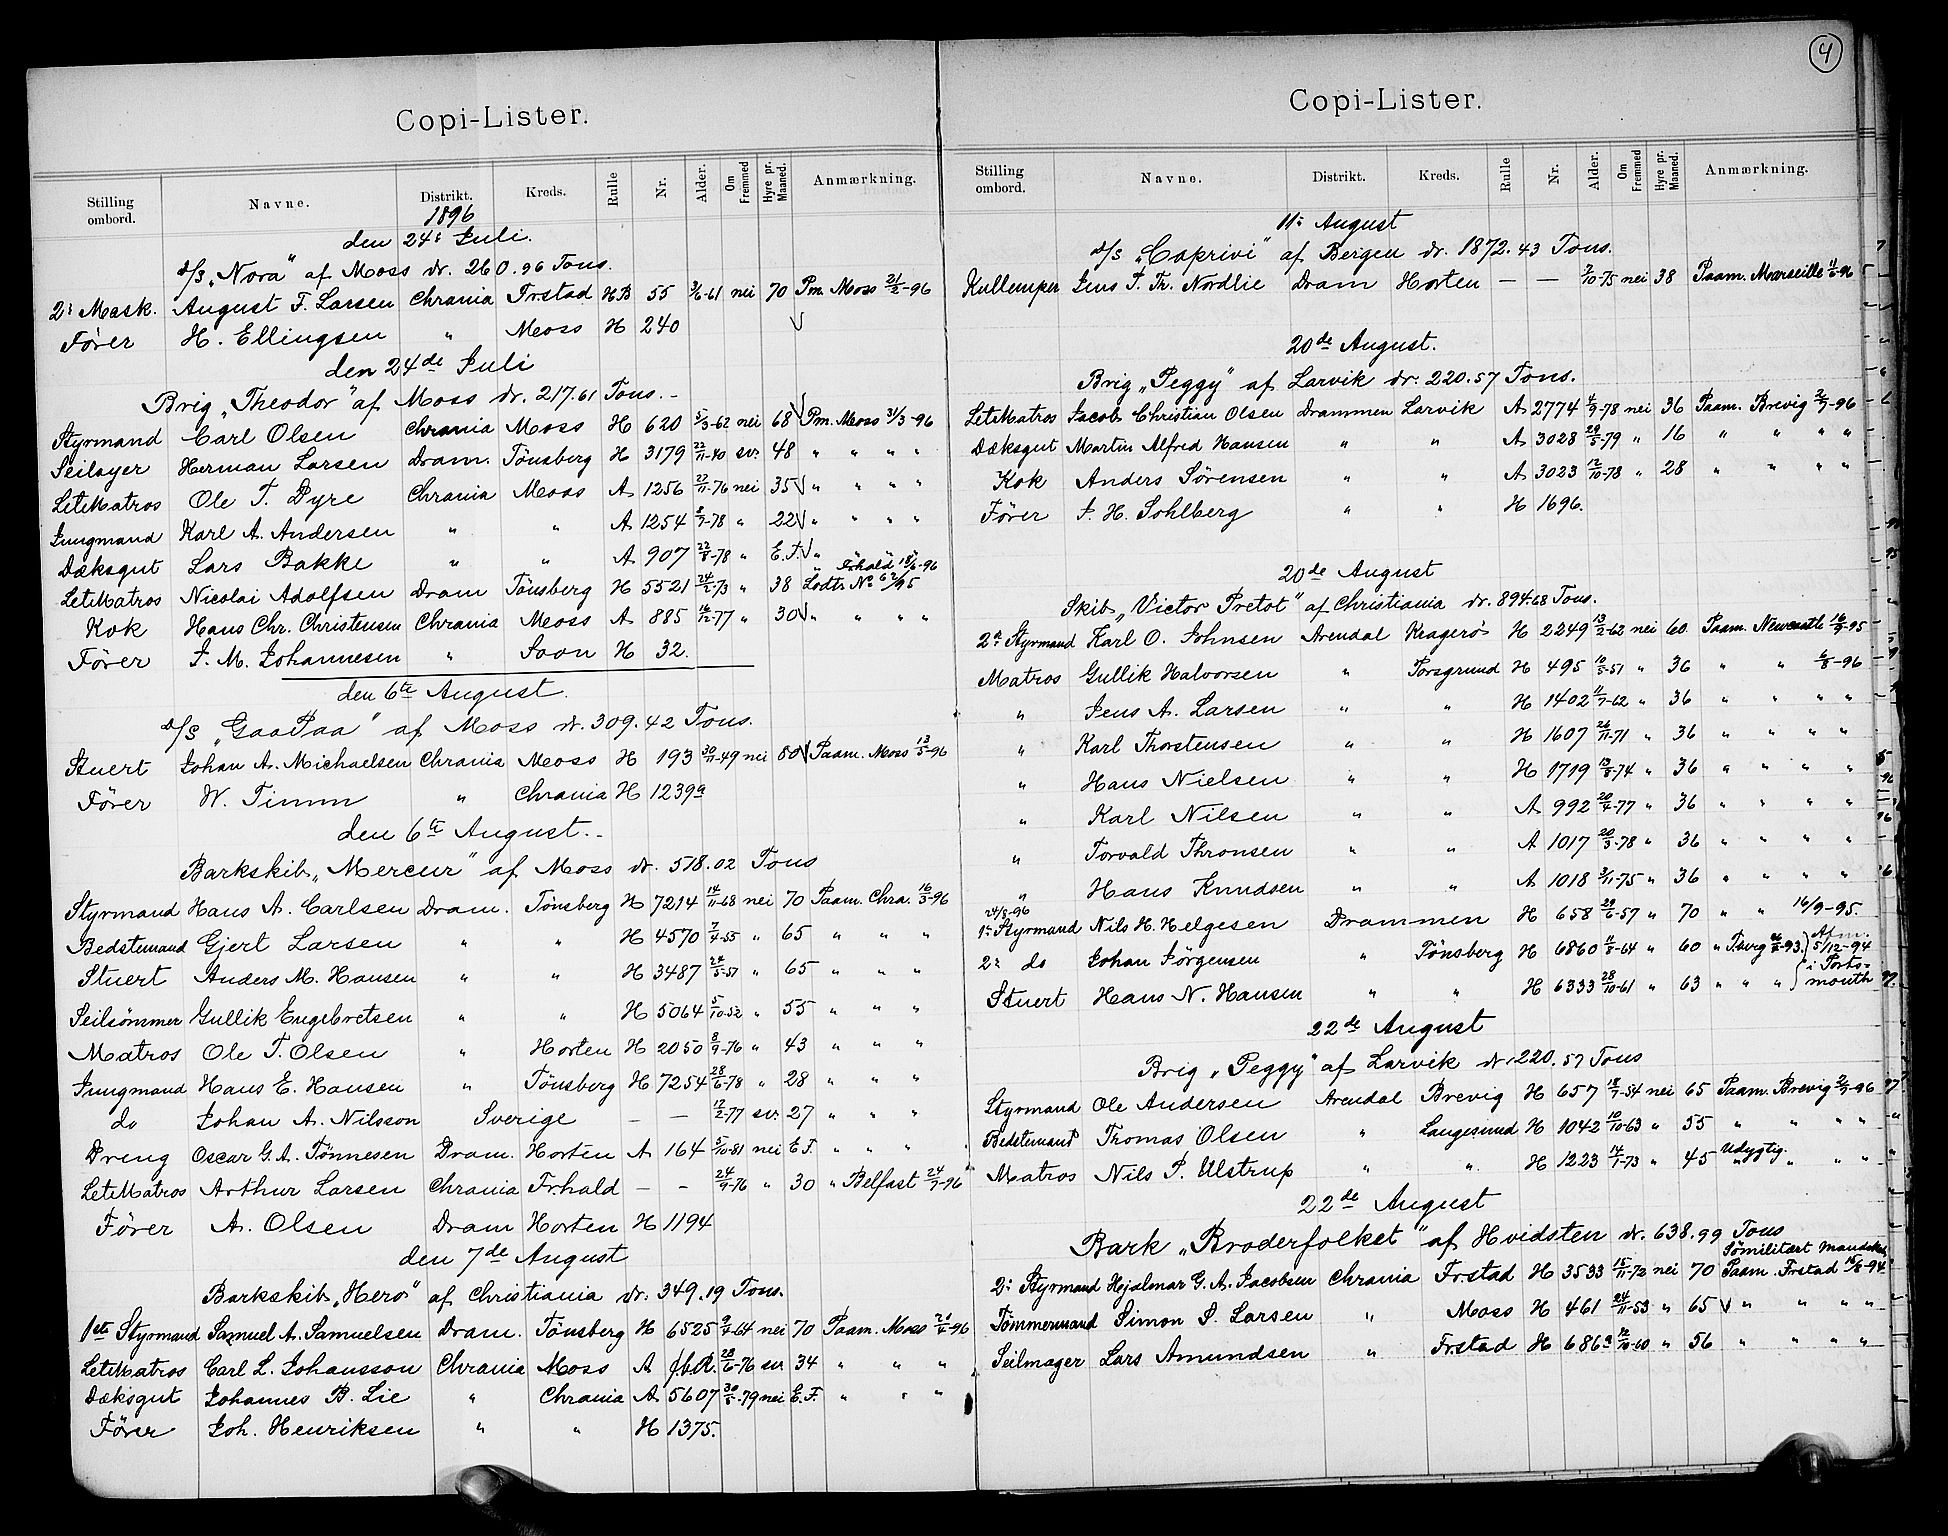 4
Copi-Lister.
Stilling ombord. Navne. Distrikt. Kreds. Rulle Nr. Alder. Om Fremmed Hyre pr. Maaned. Anmærkning.
1896
den 24: Juli.
d/s „Nora" af Moss dr. 260.96 Tons.
2: Mask. August F. Larsen Chrania Frstad HB 55 3/6-61 nei 70 Pm. Moss 21/2-96
Fører H. Ellingsen " Moss H 240
den 24de Juli
Brig „Theodor" af Moss dr. 217.61 Tons.-
Styrmand Carl Olsen Chrania Moss H 620 5/3-62 nei 68 Pm. Moss 31/3-96
Seilayer Herman Larsen Dram. Tönsberg H 3179 22/11-40 sv: 48 " " " "
LetMatros Ole T. Dyre Chrania Moss A 1256 27/11-76 nei 35 " " " "
Jungmand Karl A. Andersen " " A 1254 8/7-78 " 22 " " " "
Dæksgut Lars Bakke " " A 907 22/8-78 " E.F. "
" Frhald 18/6-96
LetMatros Nicolai Adolfsen Dram Tönsberg H 5521 24/2-73 " 38 Lodts. No 62/95
Kok Hans Chr. Christensen Chrania Moss A 885 16/12-77 " 30 " " " "
Fører J. M. Johannesen " Soon H 32.
den 6te August.
d/s „GaaPaa" af Moss dr. 309.42 Tons.
Stuert Johan A. Michaelsen Chrania Moss H 193 30/11-49 nei 80 Paam. Moss 13/5-96
Fører W. Timm " Chrania H 1239a
den 6te August.-
Barkskib „Mercur" af Moss dr. 518.02 Tons
Styrmand Hans A. Carlsen Dram. Tönsberg H 7214 14/11-68 nei 70 Paam. Chra. 16/3-96
Bedstemand Gjert Larsen " " H 4570 7/4-55 " 65 " " "
Stuert Anders M. Hansen " " H 3487 24/5-51 " 65 " " "
Seilsömmer Gullik Engebretsen " " H 5064 5/10-52 " 55 " " "
Matros Ole T. Olsen " Horten H 2050 8/9-76 " 43 " " "
Jungmand Hans E. Hansen " Tönsberg H 7254 28/6-78 " 28 " " "
do Johan A. Nilsson Sverige - - 17/2-77 sv: 27 " " "
Dreng Oscar G. A. Tönnesen Dram. Horten A 164 5/10-81 nei E.F. " " "
LetMatros Arthur Larsen Chrania Fr.hald - - 24/9-76 " 30 " Belfast 24/7-96
Fører A. Olsen Dram Horten H 1194
den 7de August
Barkskib „Hero" af Christiania dr. 349.19 Tons.
1ste Styrmand Samuel A. Samuelsen Dram. Tönsberg H 6525 9/4-64 nei 70 Paam. Moss 21/4-96
LetMatros Carl L. Johansson Chrania Moss A f.b.R. 28/6-76 sv: 34 " " "
Dæksgut Johannes B. Lie " Chrania A 5607 30/5-79 nei E.F. " " "
Fører Joh. Henriksen " " H 1375.
Copi-Lister.
Stilling ombord. Navne. Distrikt. Kreds. Rulle Nr. Alder. Om Fremmed Hyre pr. Maaned. Anmærkning.
11: August
d/s „Caprivi" af Bergen dr. 1872.43 Tons.
Kullemper Jens P. Th. Nordlie Dram Horten - - 3/10-75 nei 38 Paam. Marseille 11/6-96
20de August.
Brig „Peggy" af Larvik dr. 220.57 Tons.
LetMatros Jacob Christian Olsen Drammen Larvik A 2774 4/9-78 nei 36 Paam. Brevig 2/7-96
Dæksgut Martin Alfred Hansen " " A 3028 29/5-79 " 16 " " " "
Kok Anders Sörensen " " A 3023 12/10-78 " 28 " " " "
Fører J. H. Sohlberg " " H 1696.
20de August
Skib „Victor Pretot" af Christiania dr. 894.68 Tons.
2n Styrmand Karl O. Johnsen Arendal Kragerö H 2249 13/2-62 nei 60 Paam. Newcastle 16/9-95
Matros Gullik Halvorsen " Porsgrund H 495 10/5-51 " 36 " " 6/8-96
" Jens A. Larsen " " H 1402 11/7-62 " 36 " " " "
" Karl Thorstensen " " H 1607 26/11-71 " 36 " " " "
" Hans Nielsen " " H 1719 13/8-74 " 36 " " " "
" Karl Nilsen " " A 992 20/4-77 " 36 " " " "
" Torvald Thronsen " " A 1017 20/3-78 " 36 " " " "
" Hans Knudsen " " A 1018 3/11-75 " 36 " " " "
24/8-96
1: Styrmand Nils H. Helgesen Drammen H 658 29/6-57 " 70 " " 16/9-95.
2: do Johan Jörgensen " Tönsberg H 6860 11/8-64 " 60 " Tbrg -93 Afm. 5/12-94
Stuert Hans N. Hansen " " H 6333 28/10-61 " 63 " " " i Portsmouth
22de August
Brig „Peggy" af Larvik dr. 220.57 Tons
Styrmand Ole Andersen Arendal Brevig H 657 18/7-54 nei 65 Paam. Brevig 2/7-96
Bedstemand Thomas Olsen " Langesund H 1042 10/10-63 " 55 " " " "
Matros Nils P. Ulstrup " " H 1223 14/1-73 " 45 Udygtig. " " "
22de August
Bark „Broderfolket" af Hvidsten dr. 638.99 Tons
Sömilitært Mandskab
2: Styrmand Hejalmar G. A. Jacobsen Chrania Frstad H 3533 15/11-72 nei 70 Paam. Frstad 15/8-94
Tømmermand Simon S. Larsen " Moss H 461 24/11-53 " 65 " " " "
Seilmager Lars Amundsen " Frstad H 686a 12/10-60 " 56 " " " "